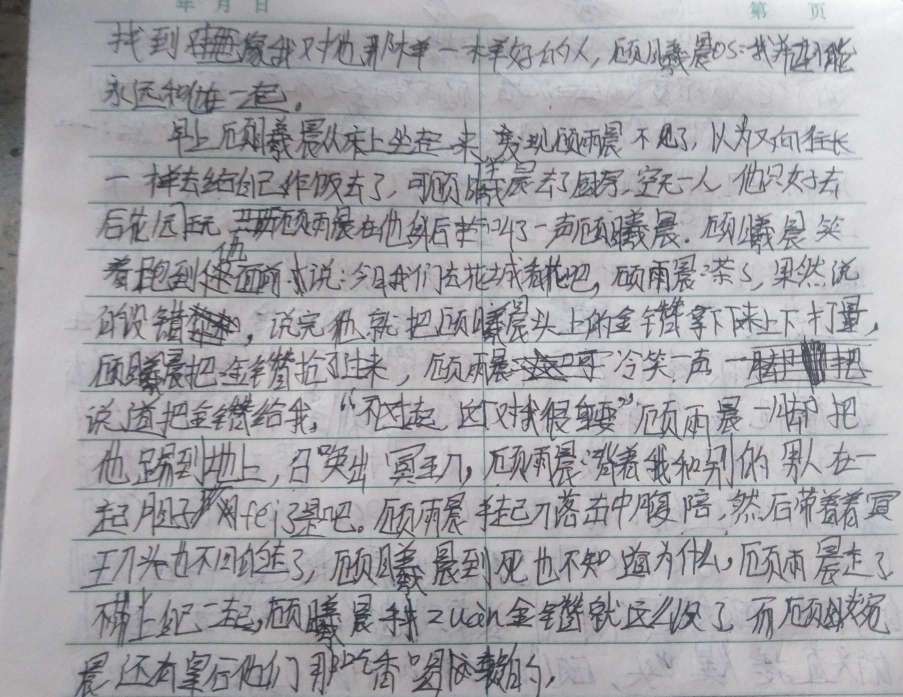 年 月 日 第 页
找到像我对他那样一样好的人,顾曦晨OS:我并不能
永远和他在一起。
早上顾曦晨从床上坐起来 发现顾雨晨不见了,以为又向往长
一样去给自己作饭去了,可顾曦晨去了厨房,空无一人 他只好去
后花园玩 顾雨晨在他身后叫了一声顾曦晨.顾曦晨笑
着跑到他面前说:今日我们去花城看花吧,顾雨晨:茶了,果然说
的没错,说完他就把顾曦晨头上的金钗拿下来上下打量,
顾曦晨把金钗抢了过来,顾雨晨冷笑一声
说道把金钗给我,“不过去 这对我很重要”顾雨晨一脚把
他踢到地上,召唤出冥王刀,顾雨晨:背着我和别的男人在一
起胆子肥fei了是吧。顾雨晨手起刀落击中腹陪,然后带着着冥
王刀头也不回的走了,顾曦晨到死也不知道为什么,顾雨晨走了
顾曦晨手zuàn金钗就这么没了 而顾
晨还有 他们那 的,